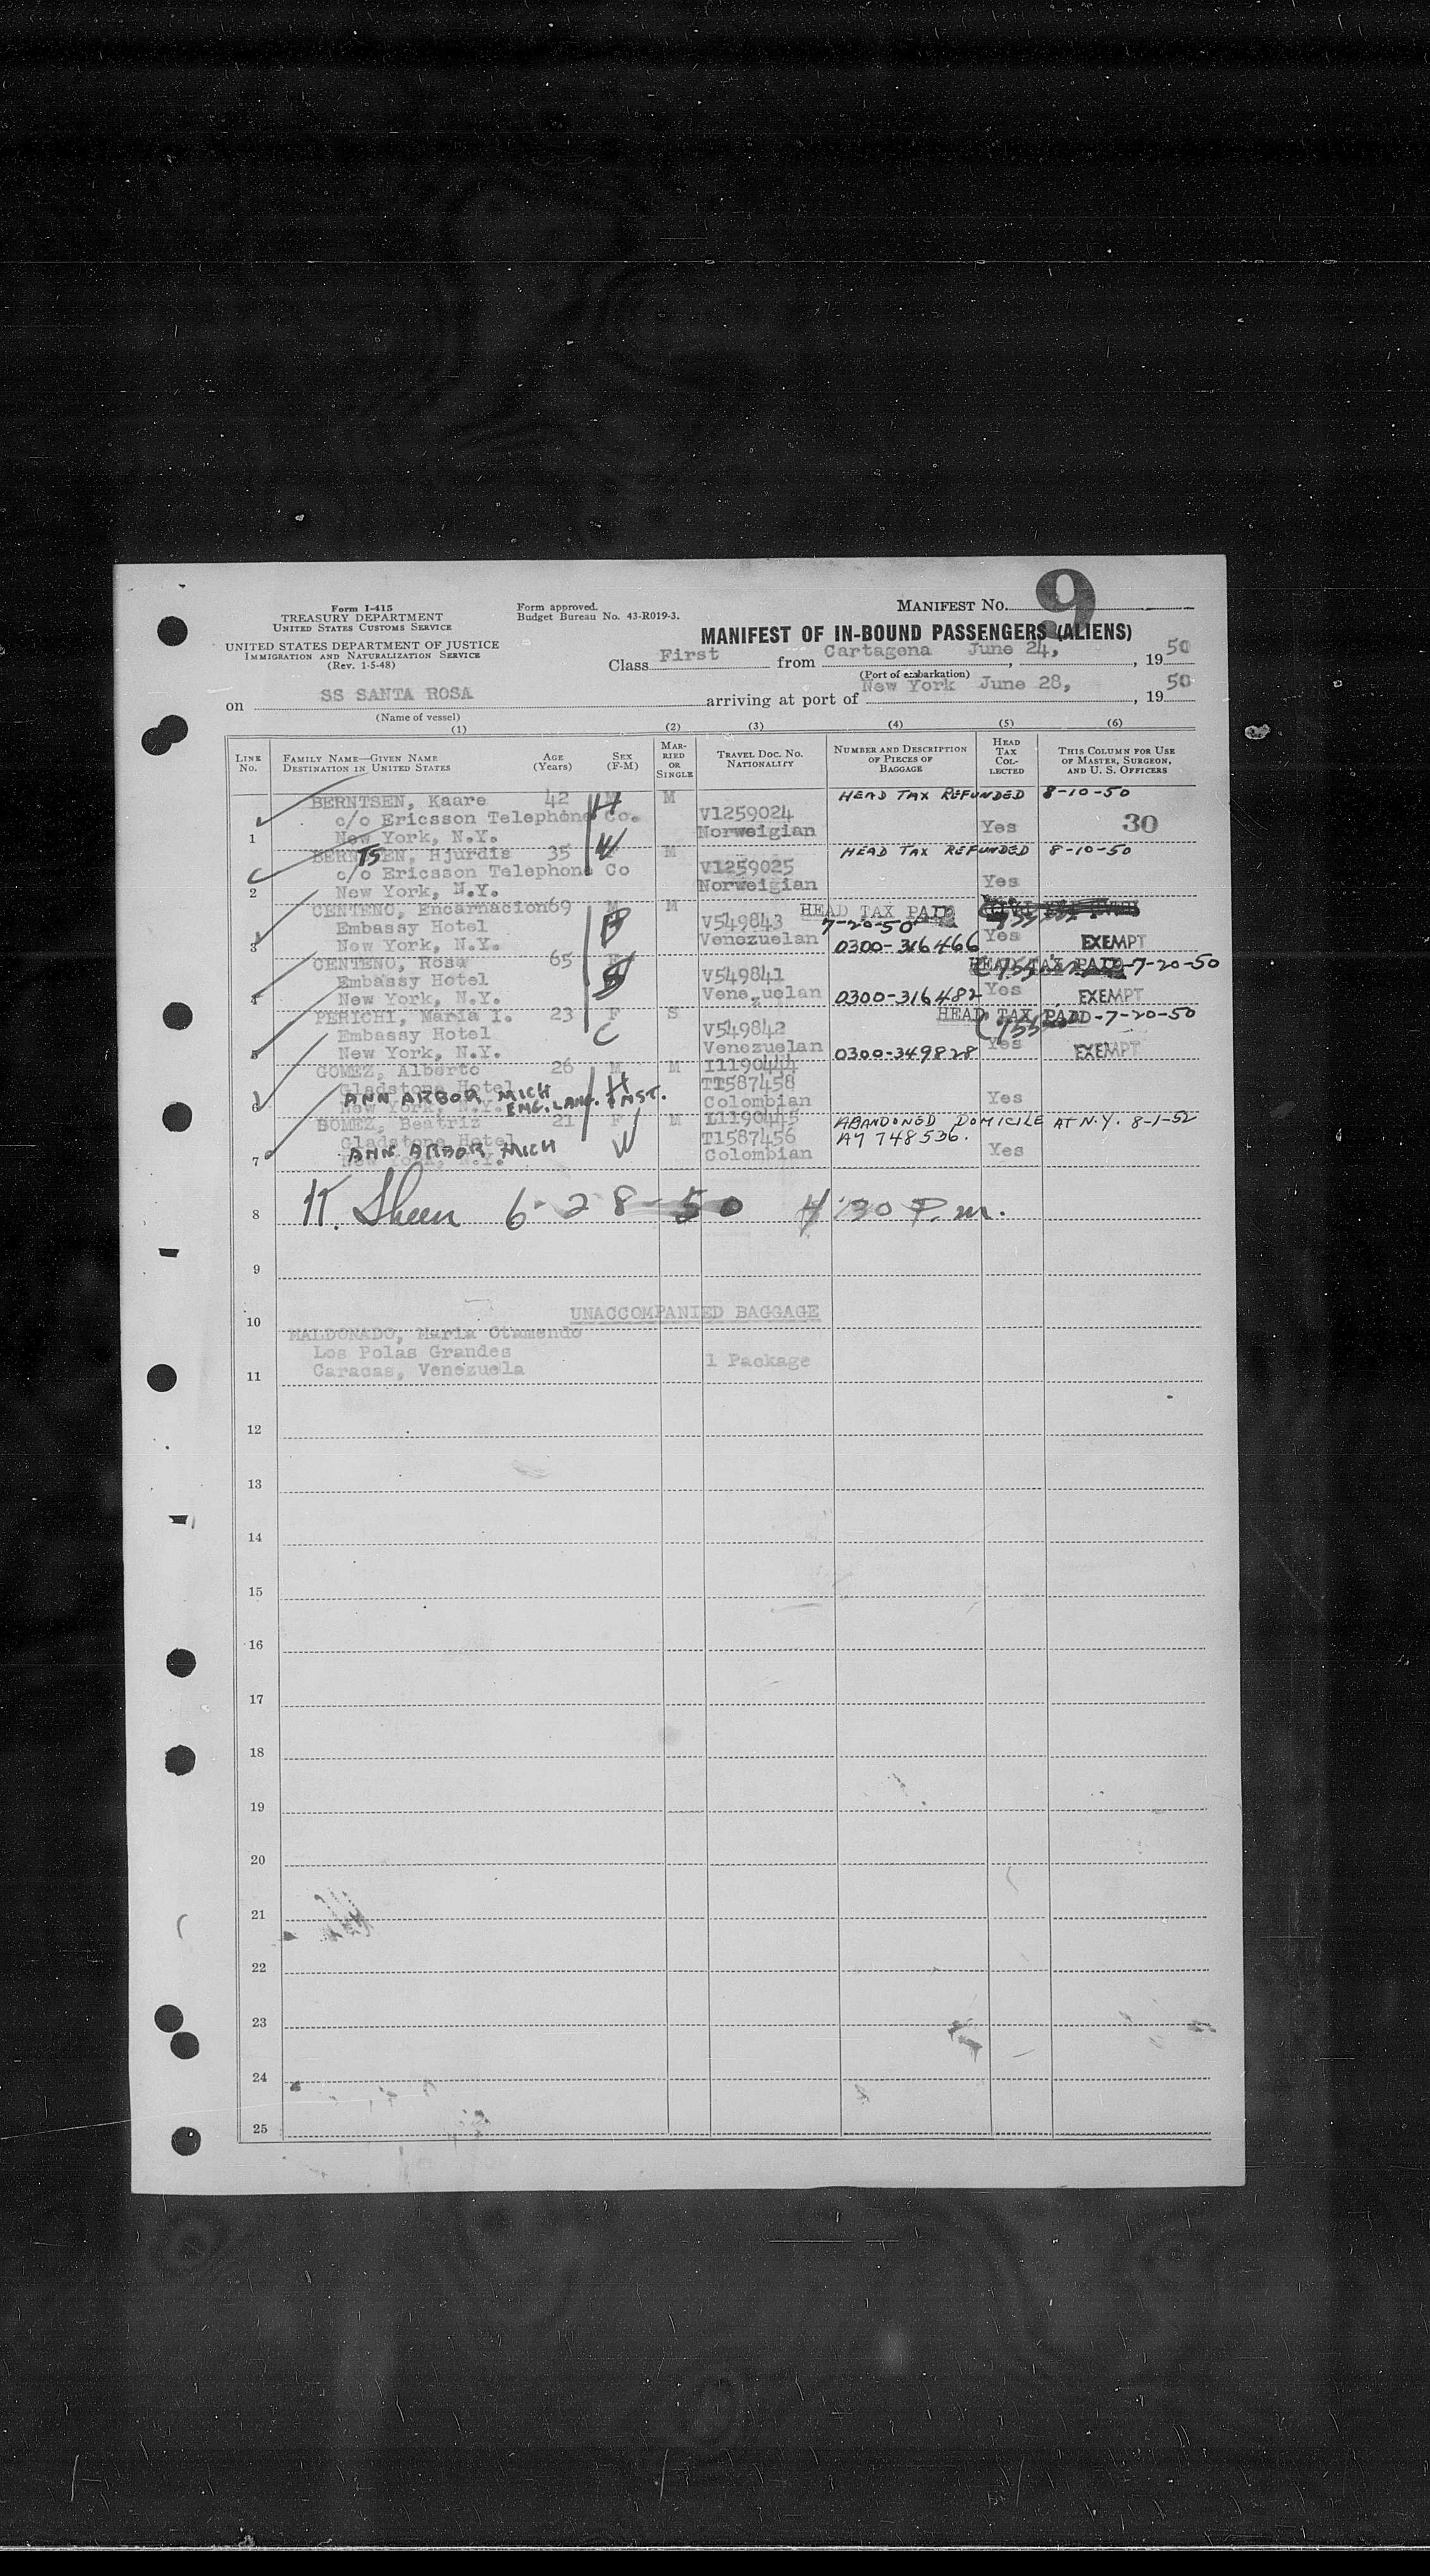 Form I-415
TREASURY DEPARTMENT
UNITED STATES CUSTOMS SERVICE
UNITED STATES DEPARTMENT OF JUSTICE
IMMIGRATION AND NATURALIZATION SERVICE
(Rev. 1-5-48)
Form approved.
Budget Bureau No. 43-R019-3.
MANIFEST NO. 9
MANIFEST OF IN-BOUND PASSENGERS (ALIENS)
Class First from Cartagena June 24, , 19 50
(Port of embarkation)
on SS SANTA ROSA arriving at port of New York June 28, , 19 50
(Name of vessel)
(1) (2) (3) (4) (5) (6)
LINE NO. FAMILY NAME—GIVEN NAME DESTINATION IN UNITED STATES AGE (Years) SEX (F-M) MARRIED OR SINGLE TRAVEL DOC. NO. NATIONALITY NUMBER AND DESCRIPTION OF PIECES OF BAGGAGE HEAD TAX COLLECTED THIS COLUMN FOR USE OF MASTER, SURGEON, AND U. S. OFFICERS
BERNTSEN, Kaare 42 M H M HEAD TAX REFUNDED 8-10-50
c/o Ericsson Telephone Co. V1259024
1 New York, N.Y. Norweigian Yes 30
BERNTSEN, Hjurdis 35 W M HEAD TAX REFUNDED 8-10-50
TS
c/o Ericsson Telephone Co V1259025
2 New York, N.Y. Norweigian Yes
CENTENO, Encarnacion 69 M M HEAD TAX PAID
Embassy Hotel V549843 7-20-50
3 New York, N.Y. Venezuelan 0300-316466 Yes EXEMPT
CENTENO, Rosa 65 HEAD TAX PAID-7-20-50
Embassy Hotel V549841
4 New York, N.Y. Venezuelan 0300-316482 Yes EXEMPT
PERICHI, Maria I. 23 F S HEAD TAX PAID-7-20-50
Embassy Hotel C V549842
5 New York, N.Y. Venezuelan 0300-349828 Yes EXEMPT
GOMEZ, Alberto 26 M M I1190444
Gladstone Hotel H TI587458
ANN ARBOR MICH ENG. LANG. INST.
6 New York, N.Y. Colombian Yes
GOMEZ, Beatriz 21 F M I1190445 ABANDONED DOMICILE AT N.Y. 8-1-52
Gladstone Hotel W T1587456 A7 748536.
ANN ARBOR MICH
7 New York, N.Y. Colombian Yes
8 Sheen 6-28-50 4:30 P.m.
9
10 UNACCOMPANIED BAGGAGE
MALDONADO, Maria Otamendo
Los Polas Grandes
11 Caracas, Venezuela 1 Package
12
13
14
15
16
17
18
19
20
21
22
23
24
25